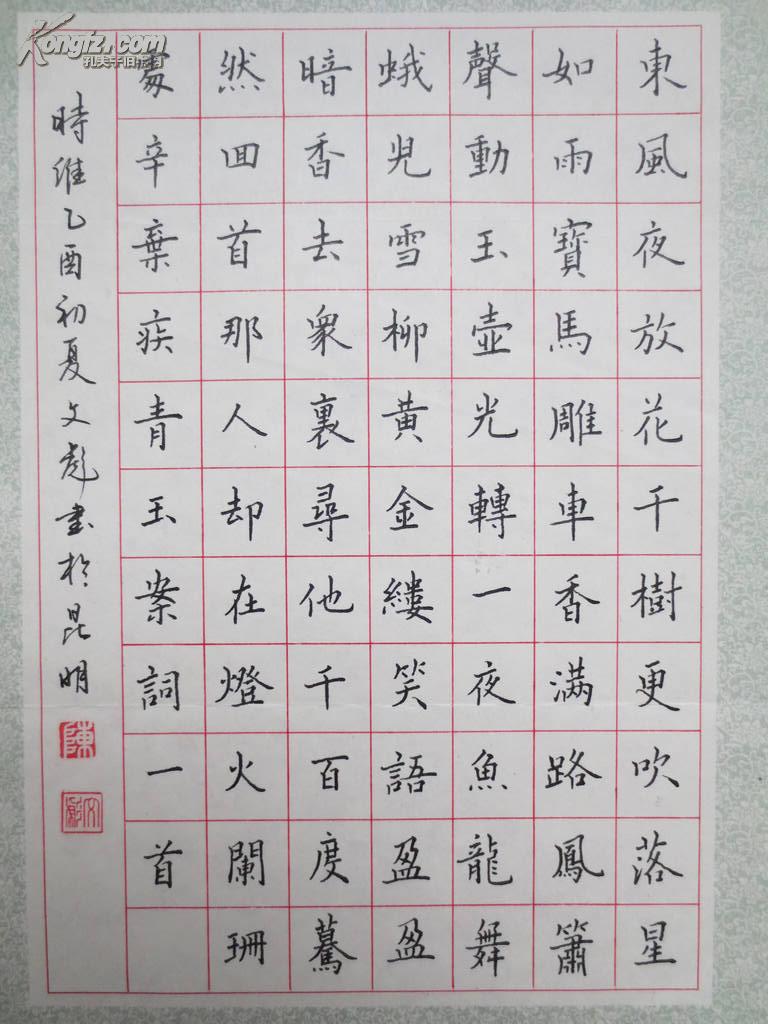 東風夜放花千樹更吹落星
如雨寶馬雕車香滿路鳳簫
聲動玉壺光轉一夜魚龍舞
蛾兒雪柳黄金縷笑語盈盈
暗香去衆裏尋他千百度驀
然回首那人却在燈火闌珊
處辛棄疾青玉案詞一首
時維乙酉初夏文彪書於昆明
陳
文彪
Kongfz.com
孔夫子旧书网